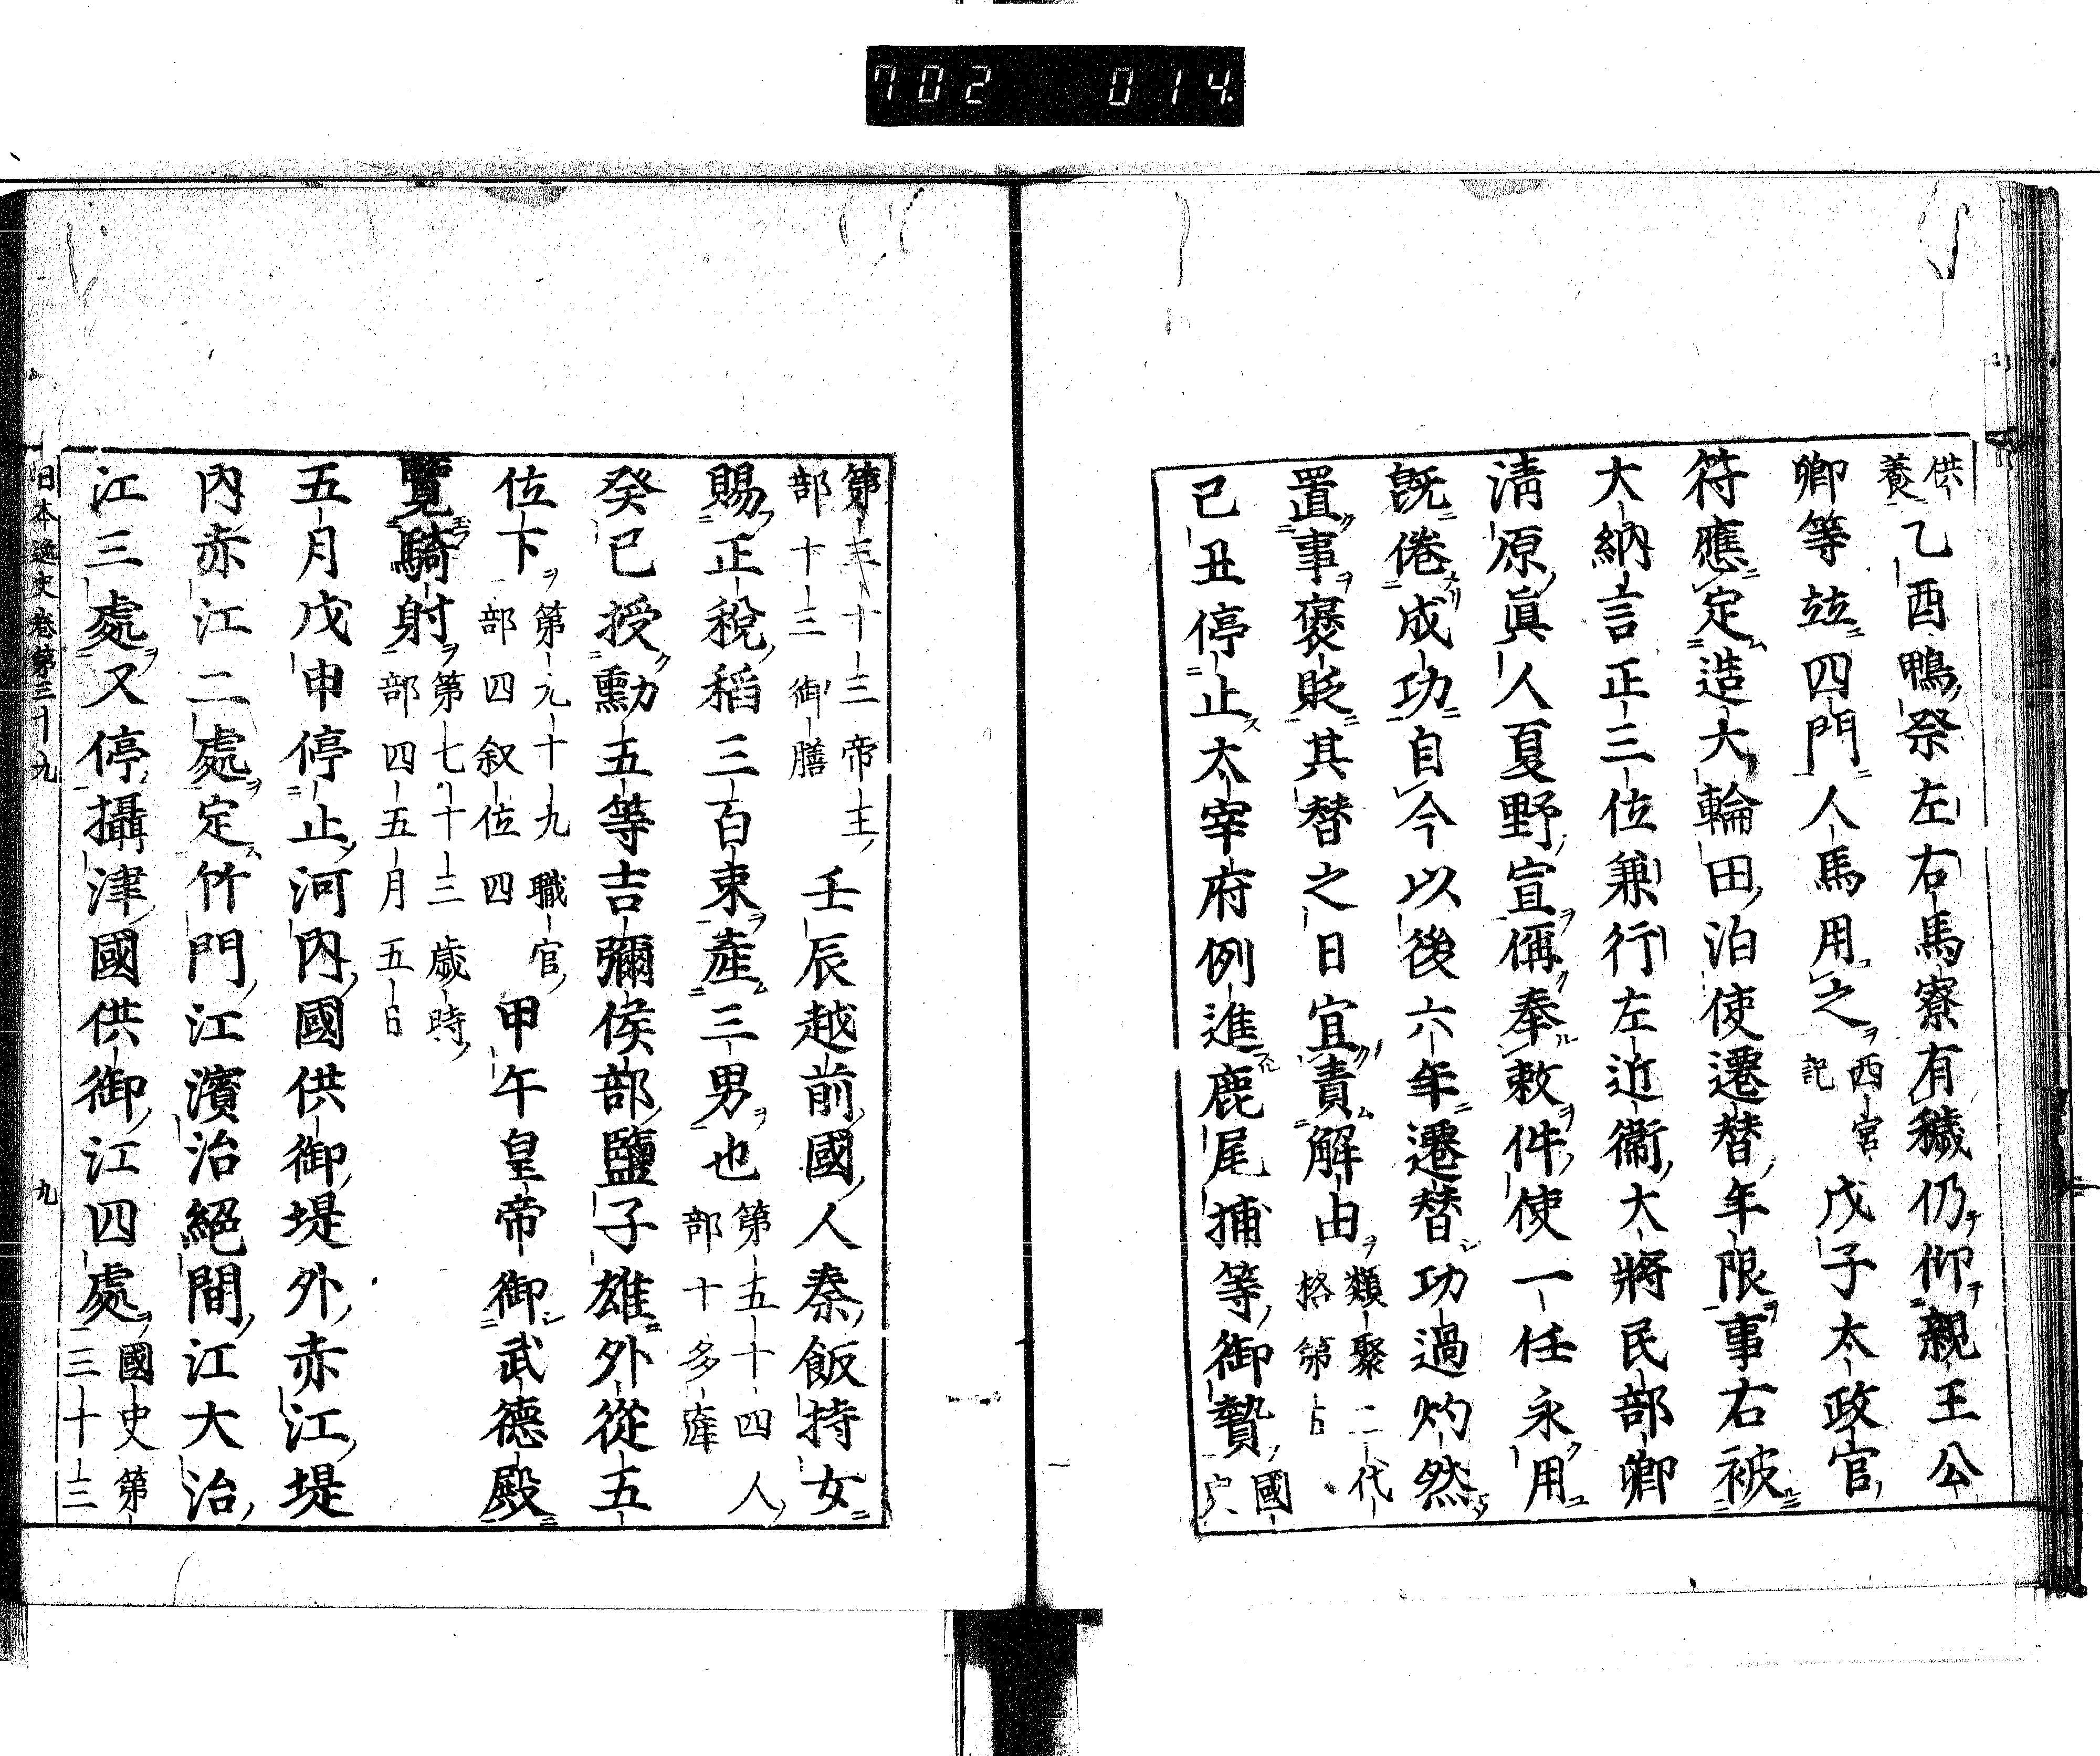 702 014
供養乙酉鴨祭左右馬寮有穢仍仰親王公
卿等竝四門人馬用之西宮記戊子太政官
符應定造大輪田泊使遷替年限事右被
大納言正三位兼行左近衞大將民部卿
淸原眞人夏野宣偁奉敕件使一任永用
旣倦成功自今以後六年遷替功過灼然
置事褒貶其替之日宜責解由類聚二代格第
己丑停止太宰府例進鹿尾捕等御贄國史
第三十三帝王部十三御膳壬辰越前國人秦飯持女
賜正稅稻三百束產三男也第五十四人部十多產
癸巳授勳五等吉彌侯部鹽子雄外從五
位下第九十九職官部四叙位四甲午皇帝御武德殿
覽騎射第七十三歲時部四五月五日
五月戊申停止河內國供御堤外赤江堤
內赤江二處定竹門江濱治絕間江大治
江三處又停攝津國供御江四處國史第三十三
日本逸史卷第三十九
九